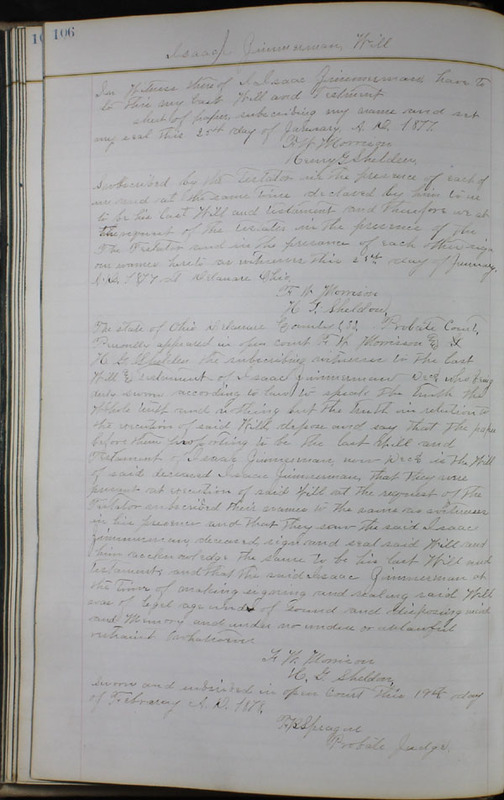 106
Isaac Zimmerman Will
In Witness thereof I Isaac Zimmerman have to
to this my Last Will and Testment
sheet of paper, subscribing my name and set
my seal this 25th day of January, A.D. 1877.
F. W. Morrison
Henry G. Sheldon,
Subscribed by the Testator in the presence of each of
us and at the same time declared by him to us
to be his Last Will and testament and therefore we at
the request of the Testator in the presence of
the Testator and in the presence of each other sign
our names hereto as witnesses this 25th day of January,
A.D. 1877 at Delaware Ohio.
F. W. Morrison
H. G. Sheldon,
The State of Ohio Delaware County Probate Court,
Personly appeared in open court F. W. Morrison &
H. G. Sheldon the subscribing witnesses to the Last
Will & Testament of Isaac Zimmerman Decd who being
duly sworn according to law to speak the truth the
whole truth and nothing but the truth in relation to
the execution of said Will, depose and say that the paper
before them purporting to be the last Will and
Testament of Isaac Zimmerman, now Decd is the Will
of said deceased Isaac Zimmerman, that they were
present at execution of said Will at the request of the
Testator subscribed their names to the same as witnesses
in his presence and that they saw the said Isaac
Zimmerman, deceased sign and seal said Will and
him acknowledge the same to be his last Will and
testament, and that the said Isaac Zimmerman at
the time of making signing and sealing said Will
was of legal age and of sound and disposing mind
and Memory and under no undue or unlawful
restraint whatsoever
F. W. Morrison
H. G. Sheldon,
Sworn and subscribed in open Court this 19th day
of February A.D. 1878.
Sprague
Probate Judge.